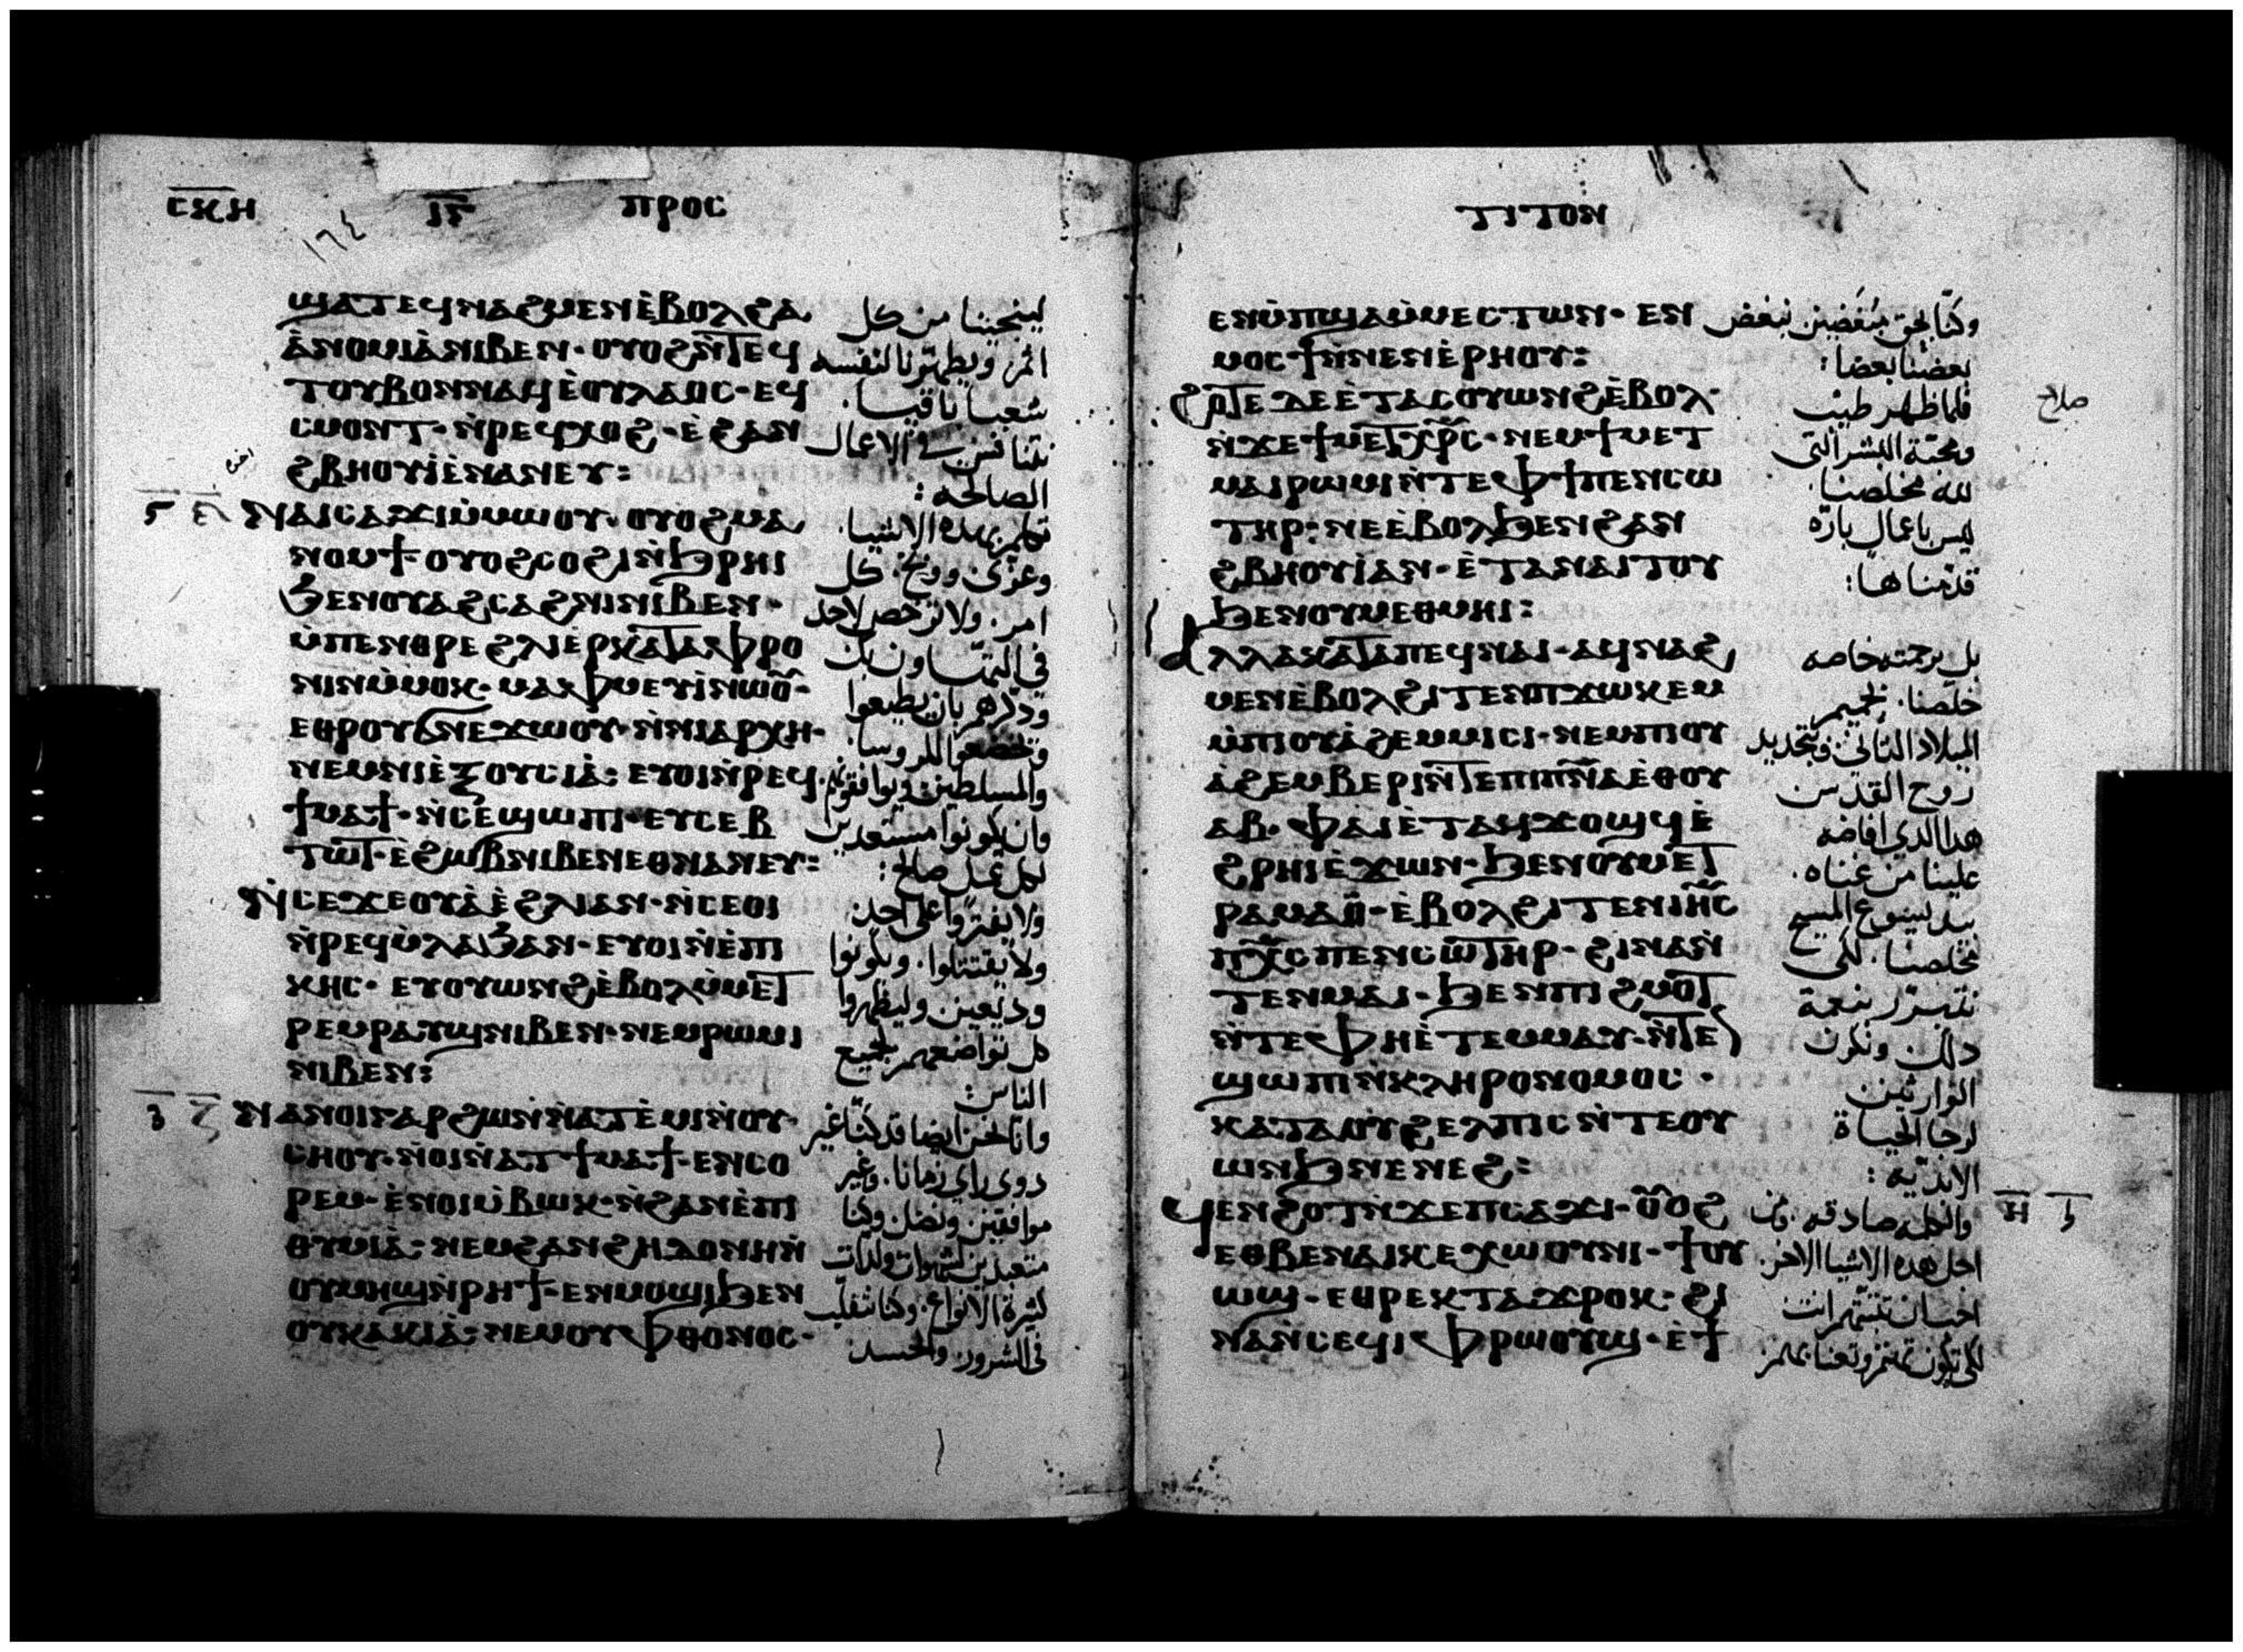 ⲤⲔⲎ ⲒⲊ ⲠⲢⲞⲤ
١٦٤
ϣⲁⲧⲉϥⲛⲁϩⲙⲉⲛⲉ̀ⲃⲟⲗϩⲁ
ⲁ̀ⲛⲟⲙⲓⲁ̀ⲛⲓⲃⲉⲛ· ⲟⲩⲟϩⲛ̀ⲧⲉϥ
ⲧⲟⲩⲃⲟⲛⲛⲁϥⲉ̀ⲟⲩⲗⲁⲟⲥ· ⲉϥ
ⲥⲙⲟⲛⲧ· ⲛ̀ⲣⲉϥⲭⲟϩ· ⲉ̀ϩⲁⲛ
ϩⲃⲏⲟⲩⲓ̀ⲉ̀ⲛⲁⲛⲉⲩ:
ⲛⲁⲓⲥⲁϫⲓⲙ̀ⲙⲱⲟⲩ· ⲟⲩⲟϩⲙⲁ
ⲛⲟⲙϯ ⲟⲩⲟϩⲥⲟϩⲓⲛ̀ϧⲣⲏⲓ
ϧⲉⲛⲟⲩⲁϩⲥⲁϩⲛⲓⲛⲓⲃⲉⲛ·
ⲙ̀ⲡⲉⲛⲑⲣⲉϩⲗⲓⲉⲣⲕⲁⲧⲁⲫⲣⲟ
ⲛⲓⲛⲙ̀ⲙⲟⲕ· ⲙⲁⲫⲙⲉⲩⲓ̀ⲛⲱⲟⲩ·
ⲉⲑⲣⲟⲩϭⲛⲉϫⲱⲟⲩ· ⲛ̀ⲛⲓⲁⲣⲭⲏ·
ⲛⲉⲙⲛⲓⲉ̀ⲝⲟⲩⲥⲓⲁ̀: ⲉⲩⲟⲓⲛ̀ⲣⲉϥ
ϯⲙⲁϯ· ⲛ̀ⲥⲉϣⲱⲡⲓ· ⲉⲩⲥⲉⲃ
ⲧⲱⲧ· ⲉ̀ϩⲱⲃⲛⲓⲃⲉⲛⲉⲑⲛⲁⲛⲉⲩ:
ⲛ̀ⲥⲉϫⲉⲟⲩⲁ̀ⲉ̀ϩⲗⲓⲁⲛ· ⲛ̀ⲥⲉⲟⲓ
ⲛ̀ⲣⲉϥⲙ̀ⲗⲁϧⲁⲛ· ⲉⲩⲟⲓⲛ̀ⲉ̀ⲡⲓ
ⲕⲏⲥ· ⲉⲩⲟⲩⲱⲛϩⲉ̀ⲃⲟⲗⲙ̀ⲙⲉⲧ
ⲣⲉⲙⲣⲁⲩϣⲛⲓⲃⲉⲛ· ⲛⲉⲙⲣⲱⲙⲓ
ⲛⲓⲃⲉⲛ:
ⲛⲁⲛⲟⲓⲅⲁⲣϩⲱⲛⲛ̀ⲁⲧⲉ̀ⲙⲓⲛ̀ⲟⲩ·
ⲥⲏⲟⲩ· ⲛ̀ⲟⲓⲛ̀ⲁⲧϯⲙⲁϯ· ⲉⲛⲥⲟ
ⲣⲉⲙ· ⲉ̀ⲛⲟⲓⲙ̀ⲃⲱⲕ· ⲛ̀ϩⲁⲛⲉ̀ⲡⲓ
ⲑⲩⲙⲓⲁ̀: ⲛⲉⲙϩⲁⲛϩⲏⲇⲟⲛⲏⲛ̀
ⲟⲩⲙⲏϣⲛ̀ⲣⲏϯ· ⲉⲛⲙⲟϣⲓϧⲉⲛ
ⲟⲩⲕⲁⲕⲓⲁ̀: ⲛⲉⲙⲟⲩⲫⲑⲟⲛⲟⲥ·
لينجينا من كل
اثم. ويطهرنا لنفسه
شعبا ناقيا.
نتنافس في الاعمال
الصالحه:
تكلم بهذه الاشيا.
وعزى ووبخ. كل
امر. ولا ترخص لاحد
في التهاون بك
وذكرهم بان يطيعوا
وتخضعوا للروسا.
والمسلطين ويوافقوهم.
وان يكونوا مستعدين
لكل عمل صالح:
ولا يفتروا على احد
ولا يقتتلوا. ويكونوا
وديعين وليظهروا
كل تواضعهم لجميع
الناس:
وانا نحن ايضا قد كنا غير
ذوى راي زمانا. وغير
موافقين ونضل وكنا
متعبدين لشهوات ولذات
كثيرة الانواع. وكنا نتقلب
في الشرور. والحسد
ⲦⲒⲦⲞⲚ
ⲉⲛⲙ̀ⲡϣⲁⲙ̀ⲙⲉⲥⲧⲱⲛ· ⲉⲛ
ⲙⲟⲥϯⲛ̀ⲛⲉⲛⲉ̀ⲣⲏⲟⲩ:
ϩⲟⲧⲉⲇⲉⲉ̀ⲧⲁⲥⲟⲩⲱⲛϩⲉ̀ⲃⲟⲗ·
ⲛ̀ϫⲉϯⲙⲉⲧⲭⲣⲥ· ⲛⲉⲙϯⲙⲉⲧ
ⲙⲁⲓⲣⲱⲙⲓⲛ̀ⲧⲉⲫϯⲡⲉⲛⲥⲱ
ⲧⲏⲣ: ⲛⲉⲉ̀ⲃⲟⲗϧⲉⲛϩⲁⲛ
ϩⲃⲏⲟⲩⲓ̀ⲁⲛ· ⲉ̀ⲧⲁⲛⲁⲓⲧⲟⲩ
ϧⲉⲛⲟⲩⲙⲉⲑⲙⲏⲓ:
ⲁⲗⲗⲁⲕⲁⲧⲁⲡⲉϥⲛⲁⲓ· ⲁϥⲛⲁϩ
ⲙⲉⲛⲉ̀ⲃⲟⲗϩⲓⲧⲉⲛⲡϫⲱⲕⲉⲙ
ⲙ̀ⲡⲓⲟⲩⲁ̀ϩⲉⲙⲙⲓⲥⲓ· ⲛⲉⲙⲡⲓⲟⲩ
ⲁ̀ϩⲉⲙⲃⲉⲣⲓⲛ̀ⲧⲉⲡⲓⲡⲛⲁⲉⲑⲟⲩ
ⲁⲃ· ⲫⲁⲓⲉ̀ⲧⲁϥϫⲟϣϥⲉ̀
ϩⲣⲏⲓⲉ̀ϫⲱⲛ· ϧⲉⲛⲟⲩⲙⲉⲧ
ⲣⲁⲙⲁⲟ̀· ⲉ̀ⲃⲟⲗϩⲓⲧⲉⲛⲓⲏⲥ
ⲡⲭⲥⲡⲉⲛⲥⲱⲧⲏⲣ· ϩⲓⲛⲁⲛ̀
ⲧⲉⲛⲙⲁⲓ· ϧⲉⲛⲡⲓϩⲙⲟⲧ
ⲛ̀ⲧⲉⲫⲏⲉ̀ⲧⲉⲙⲙⲁⲩ· ⲛ̀ⲧⲉ
ϣⲱⲡⲓⲛ̀ⲕⲗⲏⲣⲟⲛⲟⲙⲟⲥ·
ⲕⲁⲧⲁⲟⲩϩⲉⲗⲡⲓⲥⲛ̀ⲧⲉⲟⲩ
ⲱⲛϧⲛⲉⲛⲉϩ:
ϥⲉⲛϩⲟⲧⲛ̀ϫⲉⲡⲥⲁϫⲓ· ⲟⲩⲟϩ
ⲉⲑⲃⲉⲛⲁⲓⲕⲉⲭⲱⲟⲩⲛⲓ· ϯⲟⲩ
ⲱϣ· ⲉⲑⲣⲉⲕⲧⲁϫⲣⲟⲕ· ϩⲓ
ⲛⲁⲛ̀ⲥⲉϥⲓⲫⲣⲱⲟⲩϣ· ⲉ̀ϯ
وكنا بحق مبغضين نبغض
بعضنا بعضا:
فلما ظهر طيب
ومحبة البشر التى
لله مخلصنا.
ليس باعمال باره
قدمناها:
بل برحمته خاصه
خلصنا. بحميم
الميلاد الثاني وتجديد
روح القدس
هذا الذي افاضه
علينا من غناه.
بيد يسوع المسيح
مخلصنا. لكى
نتبرر بنعمة
ذلك ونكون
الوارثين
لرجا الحياة
الابديه:
والكلمه صادقه. ومن
اجل هذه الاشيا الاخر.
احب ان تتثبت انت
صلاح
Ⲏ